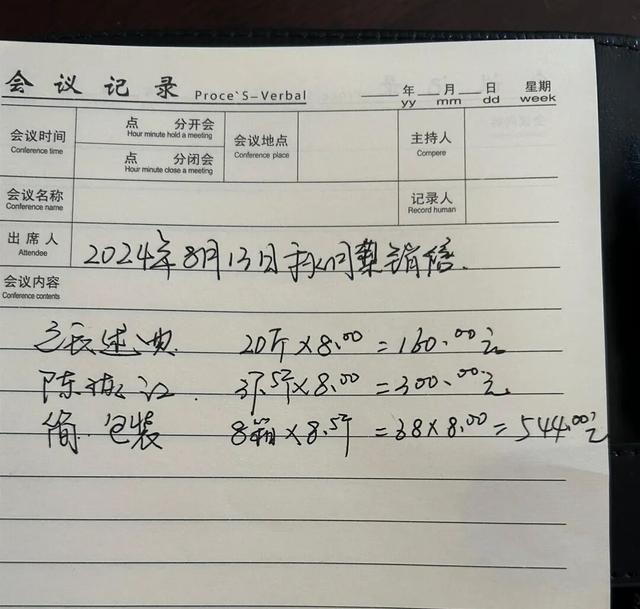 会议记录 Proce`S-Verbal 年 yy 月 mm 日 dd 星期 week
会议时间 Conference time
点 分开会 Hour minute hold a meeting
点 分闭会 Hour minute close a meeting
会议地点 Conference place
主持人 Compere
会议名称 Conference name
记录人 Record human
出席人 Attendee
2024年8月13日 销售
会议内容 Conference contents
20斤×8.00=160.00元
陈 江 37.5斤×8.00=300.00元
简 包装 8箱×8.5斤=68×8.00=544.00元